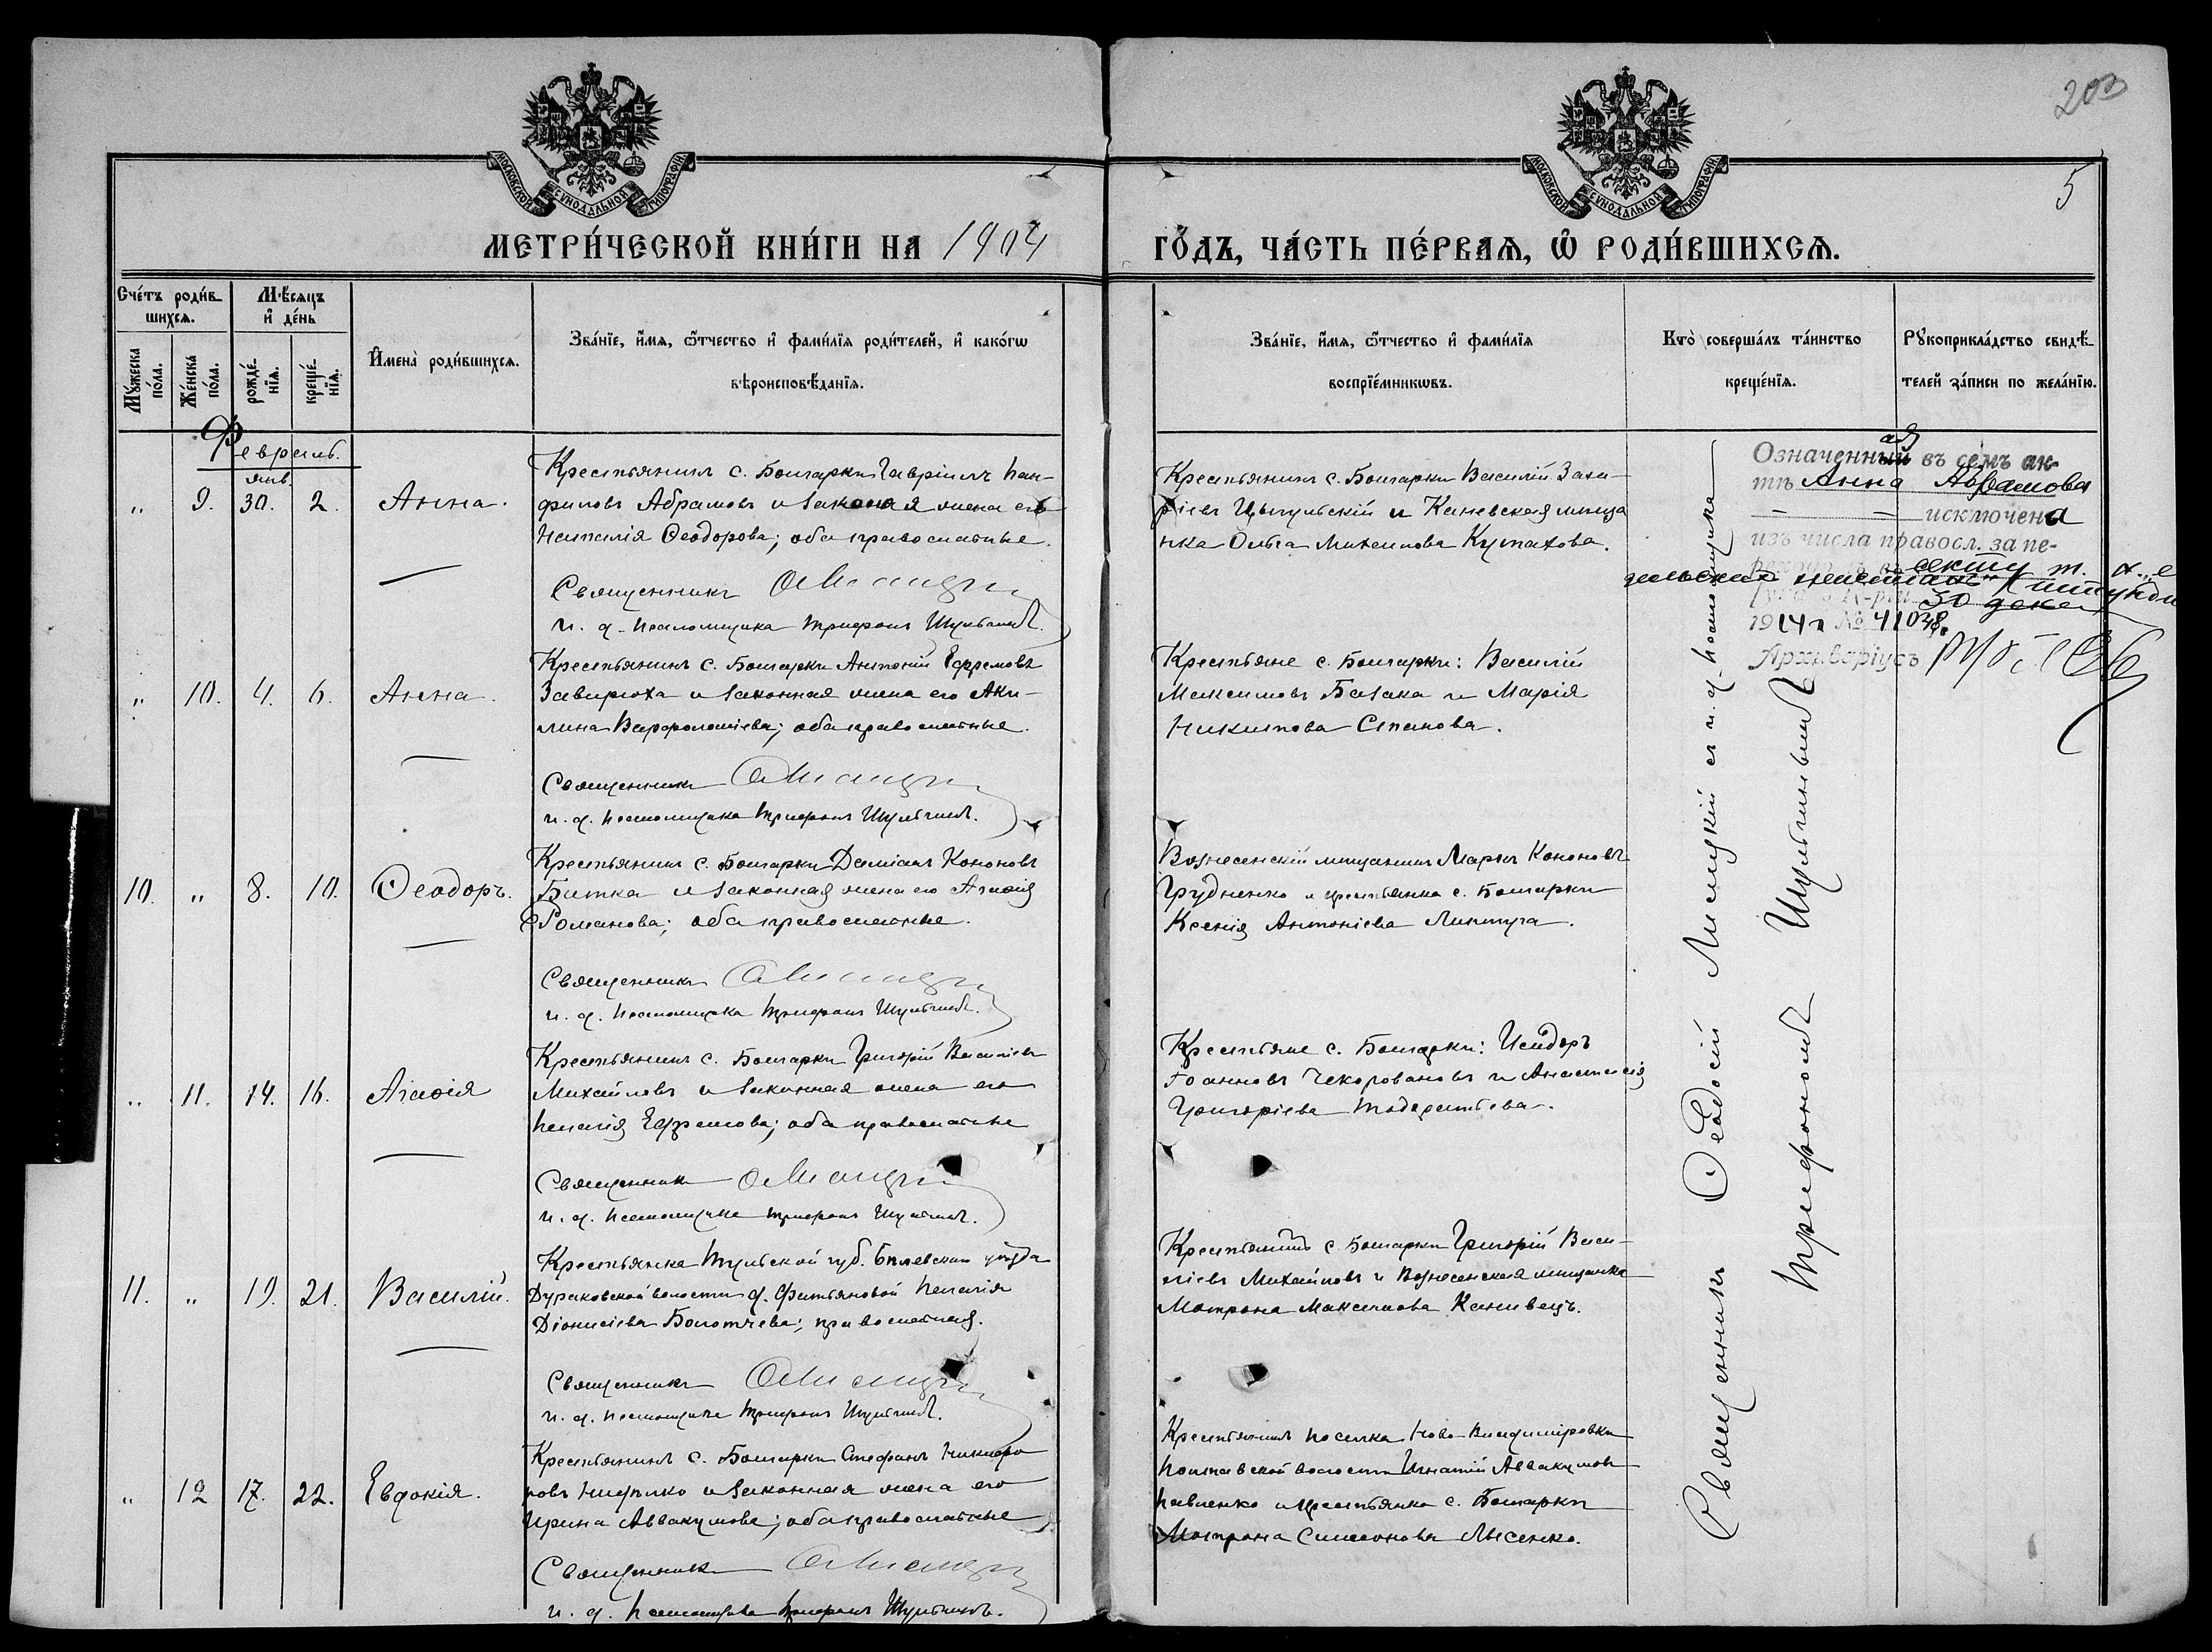 203
5
МОСКОВСКОЙ СѴНОДАЛЬНОЙ ТИПОГРАФІИ
МОСКОВСКОЙ СѴНОДАЛЬНОЙ ТИПОГРАФІИ
МЕТРИ́ЧЕСКОЙ КНИ́ГИ НА 1904
ГО́ДЪ, ЧА́СТЬ ПЕ́РВАѦ, Ѡ҆ РОДИ́ВШИХСѦ.
Сче́тъ роди́в-
шихсѧ.
Мѣ́сѧцъ
и҆ де́нь
Мꙋ́жеска
по́ла.
Же́нска
по́ла.
рожде́-
нїѧ.
креще́-
нїѧ.
И҆мена̀ роди́вшихсѧ.
Зва́нїе, и҆́мѧ, ѻ҆́тчество и҆ фами́лїѧ роди́телей, и҆ како́гѡ
вѣроисповѣ́данїѧ.
Зва́нїе, и҆́мѧ, ѻ҆́тчество и҆ фами́лїѧ
воспрїе́мникѡвъ.
Кто̀ соверша́лъ та́инство
креще́нїѧ.
Рꙋкоприкла́дство свидѣ́-
телей за́писи по жела́нїю.
Февраль.
янв.
„ 9. 30. 2. Анна.
Крестьянинъ с. Болгарки Гавріилъ Пан-
филовъ Абрамовъ и законная жена его
Наталія Ѳеодорова; оба православные.
Священникъ
и. д. псаломщика Трифонъ Шульгинъ.
Крестьянинъ с. Болгарки Василій Заха-
ріевъ Цыгульскій и Каневская мѣща
нка Ольга Михаилова Кутахова.
Означенный ая въ семъ ак-
тѣ Анна Абрамова
— — исключена
изъ числа правосл. за пе-
секту т. н. е
30 дека
1914 г № 41038
Архиваріусъ
„ 10. 4. 6. Анна.
Крестьянинъ с. Болгарки Антоній Ефремовъ
Завирюха и законная жена его Аки-
лина Варфоломіева; оба православные.
Священникъ
и. д. псаломщика Трифонъ Шульгинъ.
Крестьяне с. Болгарки: Василій
Максимовъ Базака и Марія
Никитова Спанова.
10. „ 8. 10. Ѳеодоръ.
Крестьянинъ с. Болгарки Даміанъ Кононовъ
Битка и законная жена его Агаѳія
Романова; оба православные.
Священникъ
и. д. псаломщика Трифонъ Шульгинъ.
Вознесенскій мѣщанинъ Маркъ Кононовъ
Грудненко и крестьянка с. Болгарки
Ксенія Антоніева Линтуга.
„ 11. 14. 16. Агаѳія
Крестьянинъ с. Болгарки Григорій Василіевъ
Михайловъ и законная жена его
Пелагія Ефремова; оба православные
Священникъ
и. д. псаломщика Трифонъ Шульгинъ.
Крестьяне с. Болгарки: Исидоръ
Іоанновъ Чекоровановъ и Анастасія
Григоріева
11. „ 19. 21. Василій.
Крестьянка Тульской губ. Бѣлевскаго уѣзда
Дураковской волости д. Фатьяновой Пелагія
Діонисіева Болотчева; православная.
Священникъ
и. д. псаломщика Трифонъ Шульгинъ.
Крестьянинъ с. Болгарки Григорій Васи-
ліевъ Михайловъ и Вознесенская мѣщанка
Матрона Максимова Канивецъ.
„ 12 17. 22. Евдокія.
Крестьянинъ с. Болгарки Стефанъ Никифо
ровъ Нифилко и законная жена его
Ирина Аввакумова; оба православные
Священникъ
и. д. псаломщика Трифонъ Шульгинъ.
Крестьянинъ поселка Ново-Владиміровки
Полтавской волости Игнатій Аввакумовъ
Павленко и крестьянка с. Болгарки
Матрона Симеонова Лысенко.
Священникъ Ѳеодосій Лисицкій съ и. д. псаломщика
Трифономъ Шульгинымъ